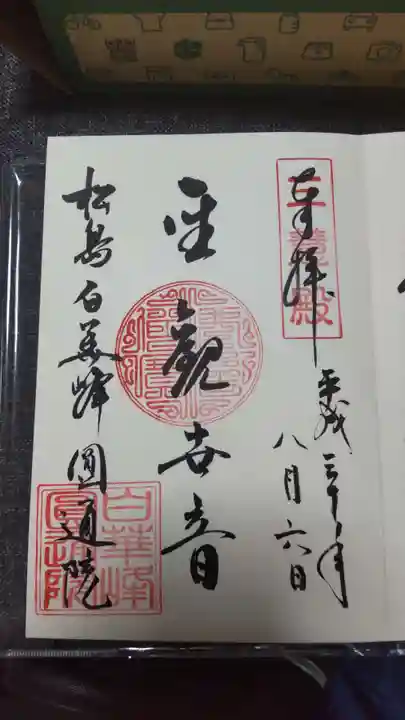 奉拝
三慧殿
平成三十年
八月六日
聖観世音
松島白華峰圓通院
白華峰
圓通院